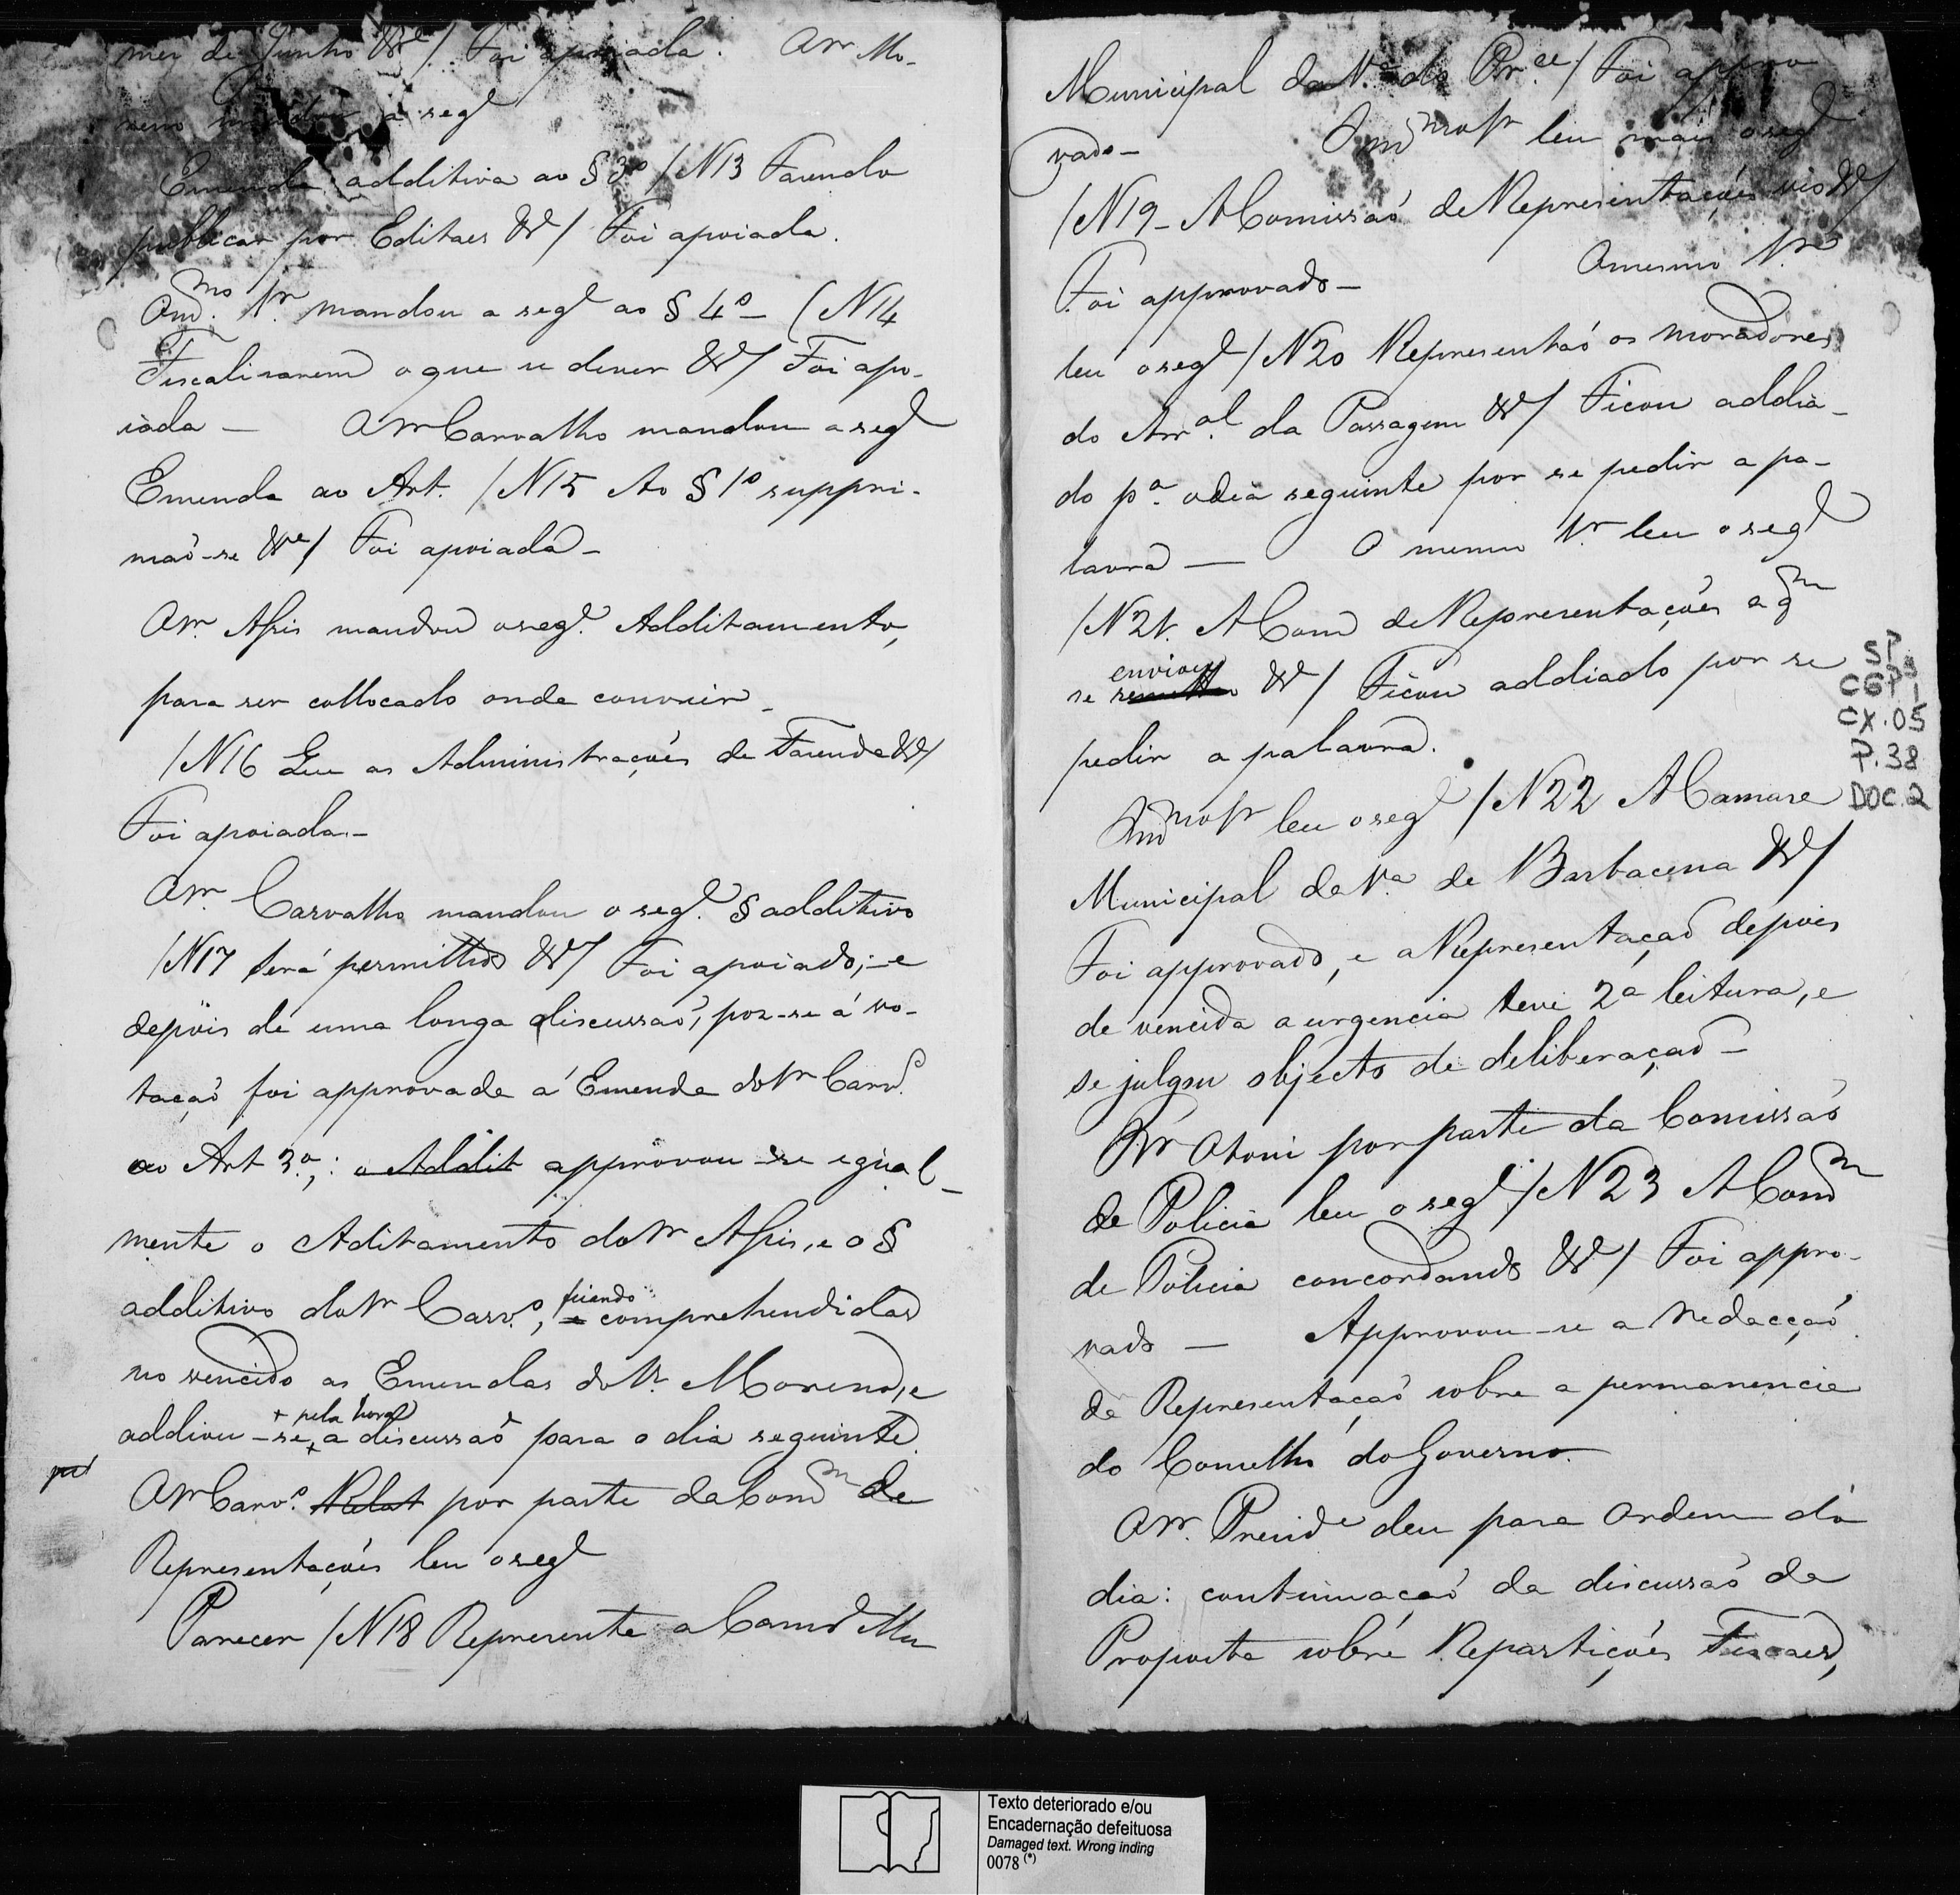 mez de Junho &ª/. Foi apoiada. O Sr Mo-
reno mandou a segᵉ
Emenda additiva ao § 3º / N 13 Fazenda
publicar por Editaes &ª/ Foi apoiada.
O mᵐᵒ Sr. mandou a segᵉ ao § 4º - (N 14
Fiscalisarem o que se dever &ª/ Foi apo-
iada - O Sr Carvalho mandou a segᵉ
Emenda ao Art. / N 15 Ao § 1º suppri-
maõ-se &ª/ Foi apoiada -
O Sr. Assis mandou o segᵉ. Additamento,
para ser collocado onde convier -
/ N 16 Que as Administrações de Fazenda &ª/
Foi apoiada. -
O Sr. Carvalho mandou o segᵉ. § additivo
/ N 17 Será permittido &ª/ Foi apoiado; - e
depois de uma longa discussaõ, poz-se á vo-
taçaõ foi approvada a Emenda do Sr Carvº.
ao Art 3º,: o Addit approvou-se egual-
mente o Aditamento do Sr Assis, e o §
additivo do Sr Carvº., e ficando comprehendidas
no vencido as Emendas do Sr. Moreno, e
addiou-se + pela hora a discussaõ para o dia seguinte.
O Sr Carvº. Relat por parte da Comᵐ de
Representações leu o segᵉ
Parecer / N 18 Representa a Camᵃ Mu-
Municipal da Vª do Prᶜᵉ/ Foi appro
vado - O mᵐᵒ Sr leu mais o segᵉ
/ N 19 - A Comissaõ de Representações vio &ª/
Foi approvado - O mesmo Sr.
leu o segᵉ / N 20 Representaõ os moradores
do Arrᵃˡ. da Passagem &ª/ Ficou addia-
do pª. o dia seguinte por se pedir a pa-
lavra - O mesmo Sr. leu o segᵉ
/ N 21. A Comᵐ de Representações a qᵐ
se remetteo enviou &ª/ Ficou addiado por se
pedir a palavra.
O mᵐᵒ Sr leu o segᵉ / N 22 A Camara
Municipal da Vª de Barbacena &ª/
Foi approvado, e a Representaçaõ depois
de vencida a urgencia teve 2ª leitura, e
se julgou objecto de deliberaçaõ -
O Sr Otoni por parte da Comissaõ
de Policia leu o segᵉ / N 23 A Comᵐ
de Policia concordando &ª/ Foi appro-
vado - Approvou-se a redacçaõ
da Representaçaõ sobre a permanencia
do Conselho do Governo.
O Sr. Presidᵉ deu para Ordem do
dia: continuaçaõ da discussaõ da
Proposta sobre Repartições Fiscaes,
SP
CGP 1
CX. 05
P. 38
DOC. 2
Texto deteriorado e/ou
Encadernação defeituosa
Damaged text. Wrong inding
0078 (*)